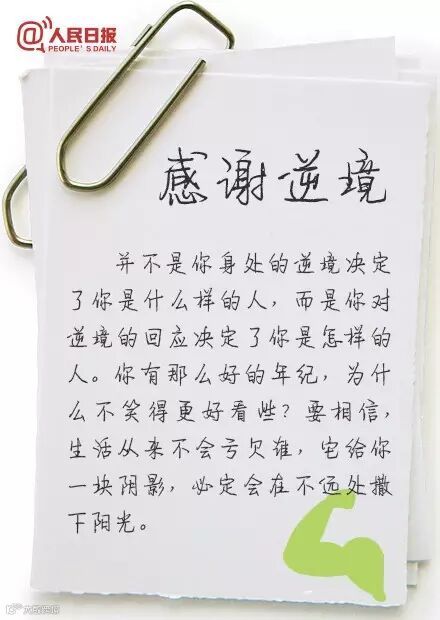 @人民日报
PEOPLE'S DAILY
感谢逆境
并不是你身处的逆境决定
了你是什么样的人，而是你对
逆境的回应决定了你是怎样的
人。你有那么好的年纪，为什
么不笑得更好看些？要相信，
生活从来不会亏欠谁，它给你
一块阴影，必定会在不远处撒
下阳光。
人民日报